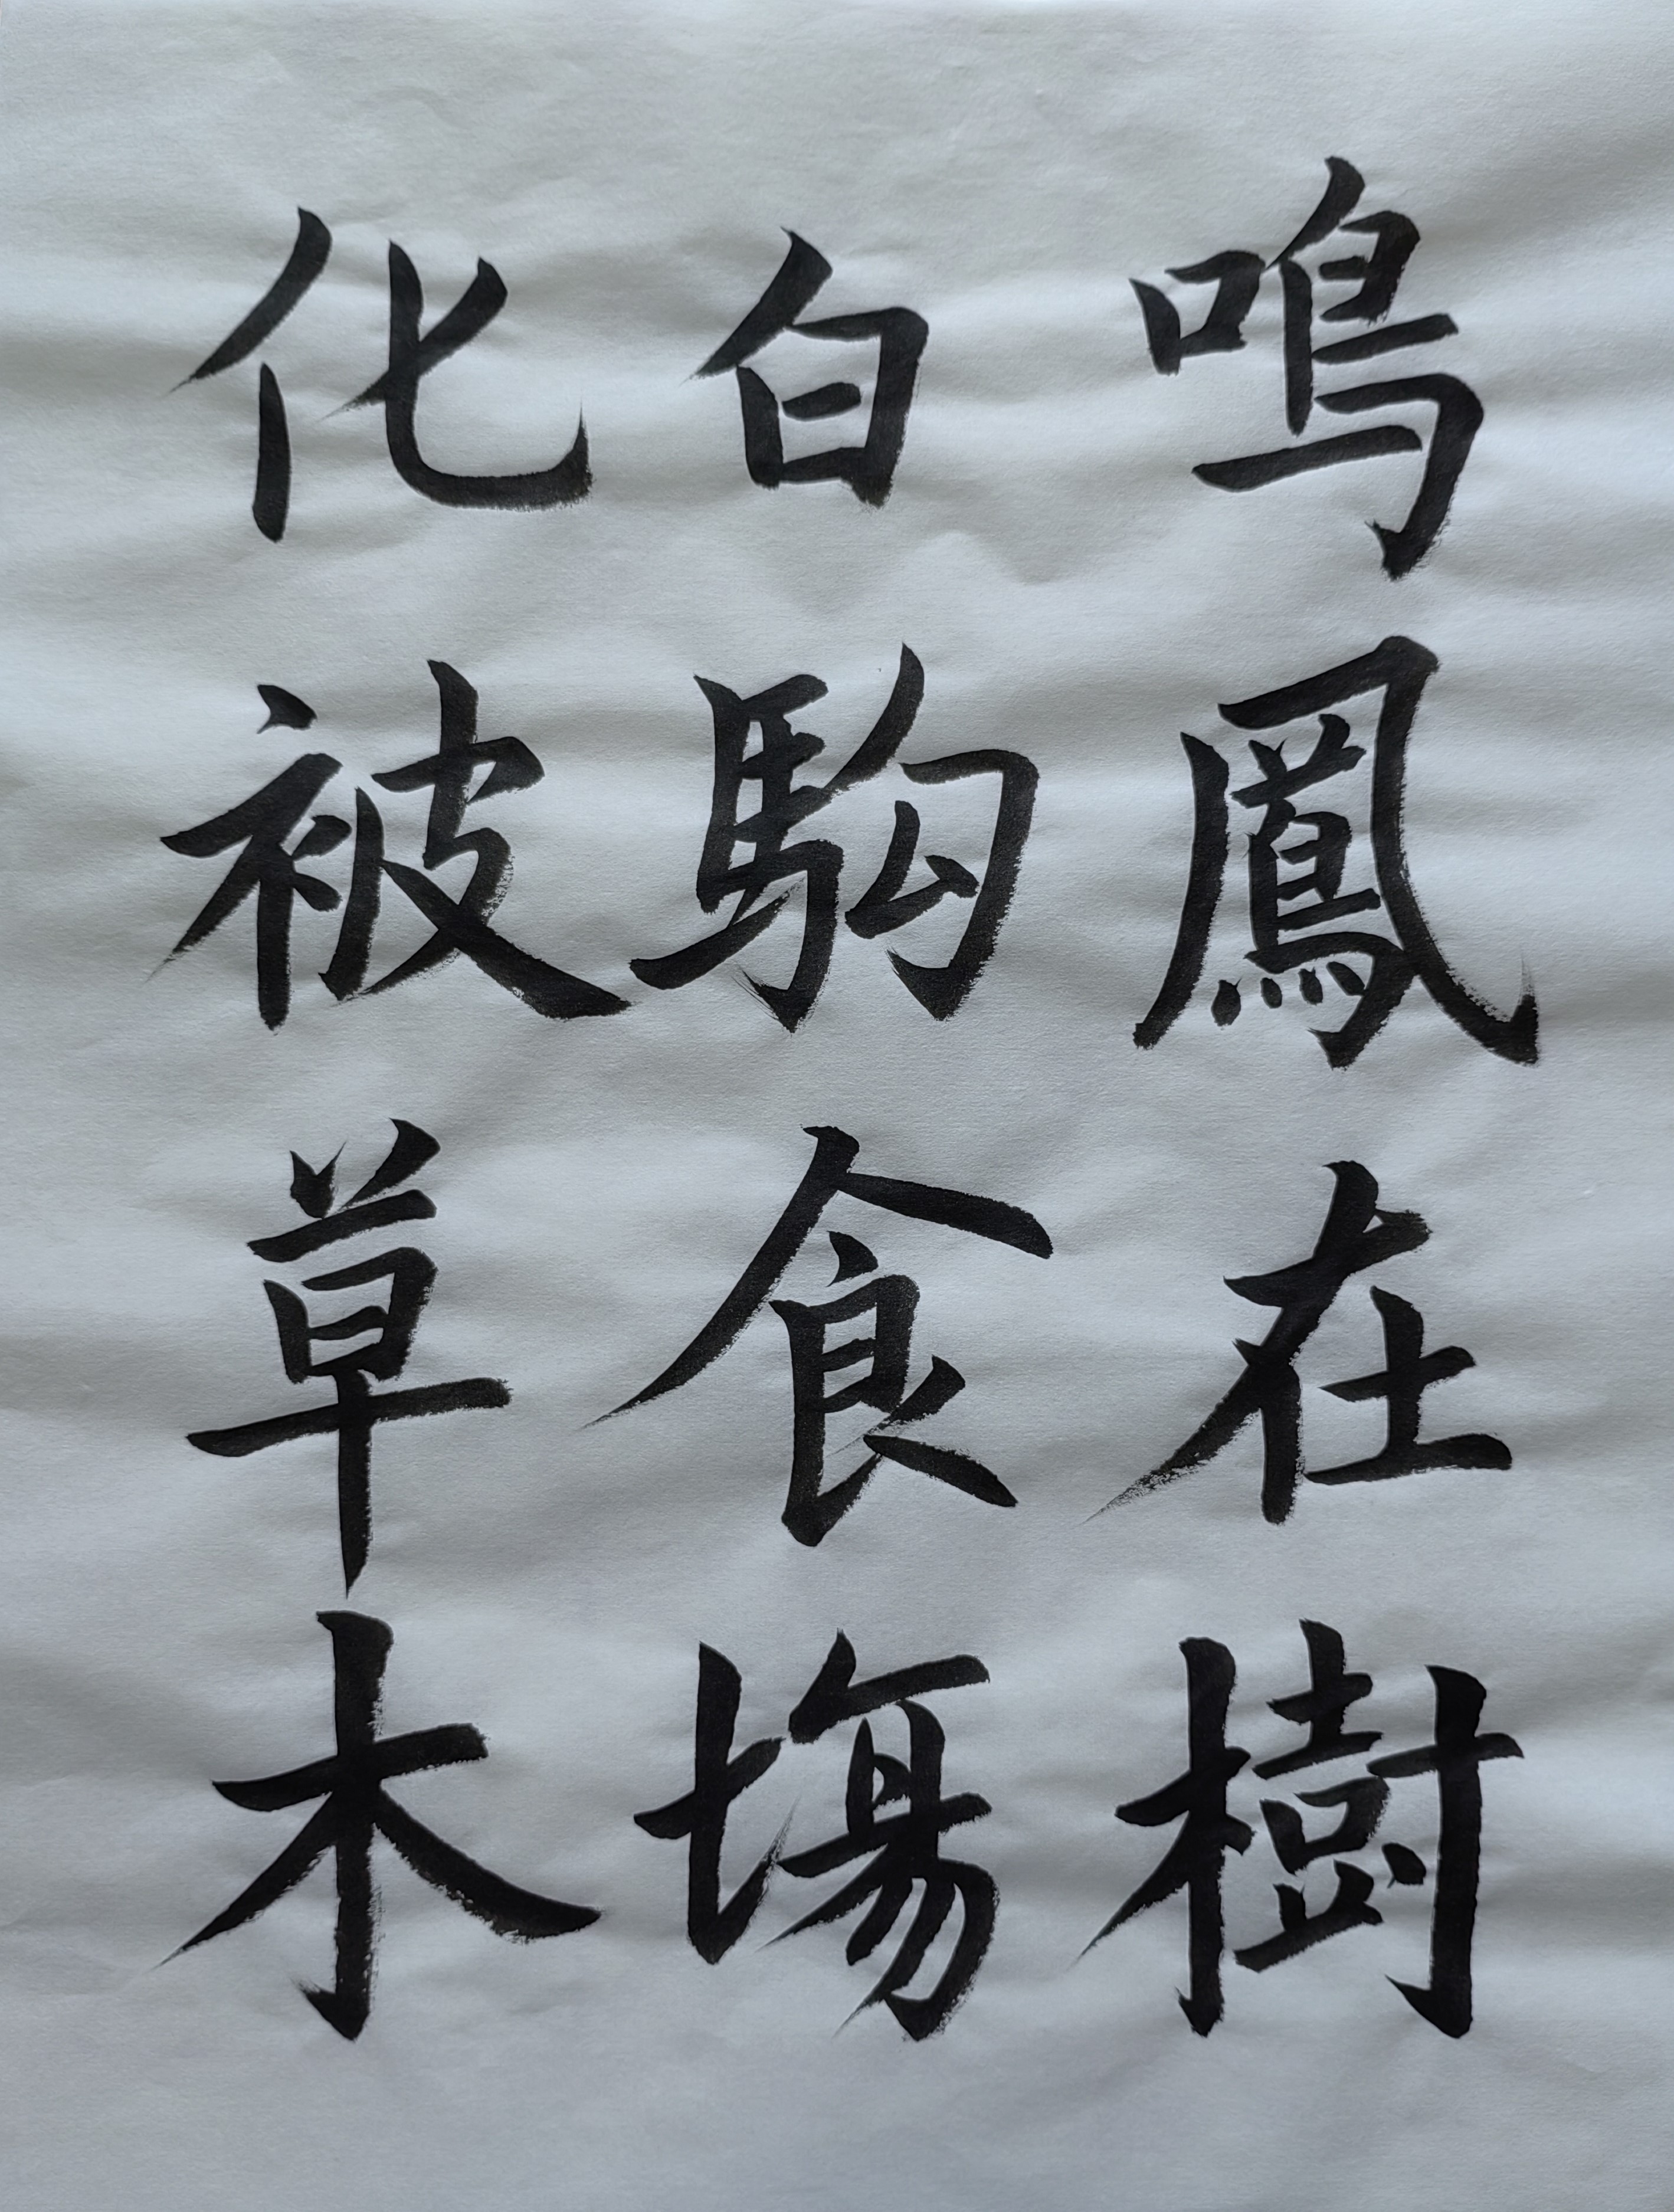 鳴鳳在樹
白駒食場
化被草木